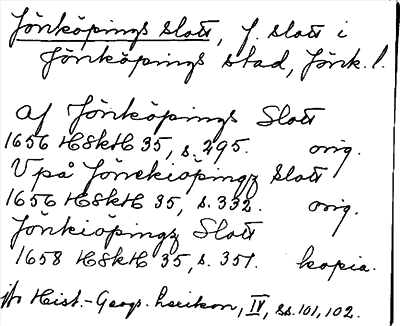 Jönköpings slott, f. slott i
Jönköpings stad, Jönk. l.
af Jönköpings Slott
1656 HSkH 35, s. 295. orig.
Vpå Jönekiöpingz slott
1656 HSkH 35, s. 332. orig.
Jönkiöpingz Slott
1658 HSkH 35, s. 351. kopia.
Hist.-Geogr. Lexikon, IV, ss. 101, 102.